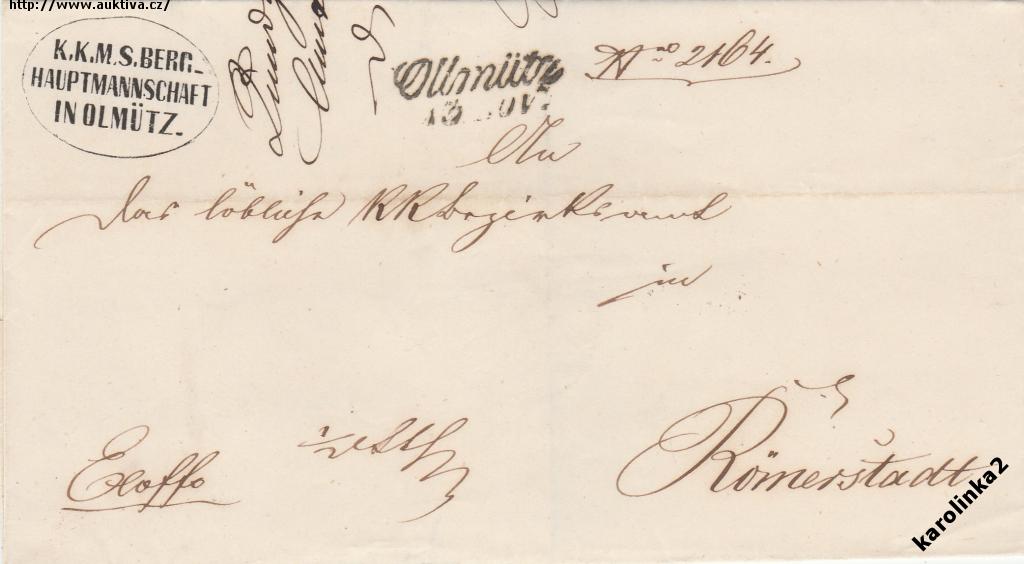 http://www.auktiva.cz/
K.K.M.S.BERG-
HAUPTMANNSCHAFT
IN OLMÜTZ.
Ollmütz
13 NOV:
Nro 2164.
An
das löbliche KK Bezirksamt
in
Römerstadt
Exoffo
karolinka2